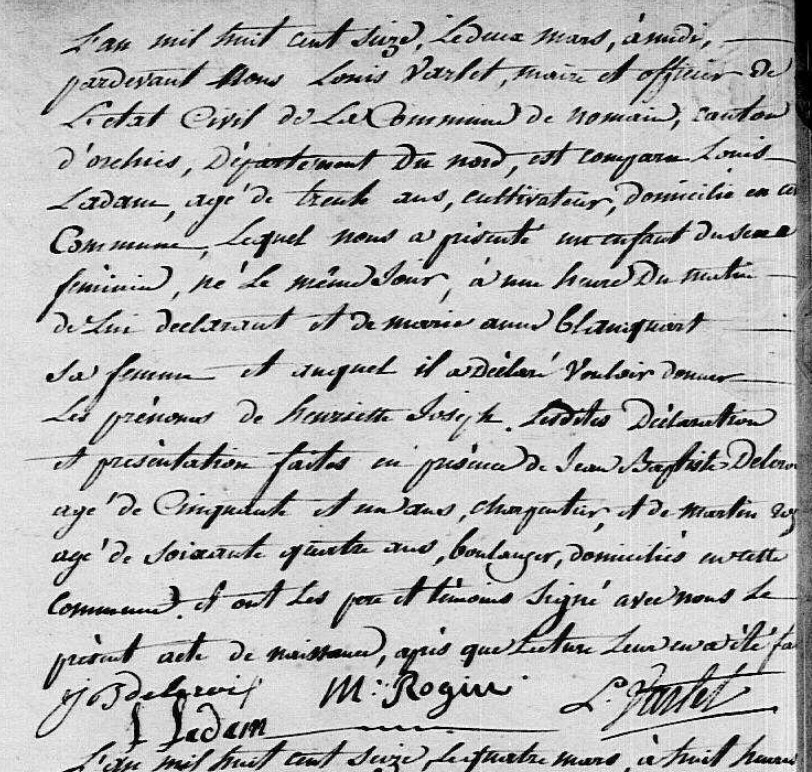 L'an mil huit cent seize, le deux mars, à midi,
pardevant Nous Louis Varlet, maire et officier de
L'etat Civil de La Commune de nomain, canton
d'orchies, Département du nord, est comparu Louis
Ladam, agé de trente ans, cultivateur, domicilié en
Commune, Lequel nous a présenté un enfant du sexe
féminin, né Le même Jour, à une heure Du matin
de Lui declarant et de marie anne blanquart
sa femme et auquel il a Déclaré Vouloir donner
Les prénoms de henriette Joseph. Lesdites Déclaration
et présentation faites en présence de Jean Baptiste
agé de Cinquante et un ans, charpentier, et de martin
agé de soixante quatre ans, boulanger, domiciliés en cette
Commune. et ont Les pere et témoins Signé avec nous Le
présent acte de naissance, après que Lecture Leur en a été
M. Rogin L. Varlet
L Ladam
L'an mil huit cent seize, le quatre mars, à huit heures